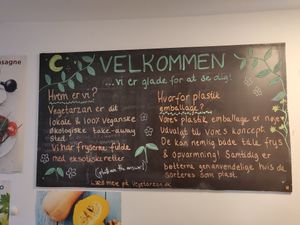 asagne
VELKOMMEN
...vi er glade for at se dig!
Hvem er vi?
Vegetarzan er dit
lokale & 100% veganske
økologiske take-away
sted.
Vi har fryserne fulde
med eksotiske retter
Hvorfor plastik
emballage?
Vores plastik emballage er nøje
Udvalgt til vores koncept.
De kan nemlig både tåle frys
& opvarmning! Samtidig er
bøtterne genanvendelige hvis de
sorteres som plast.
Læs mere på Vegetarzan.dk